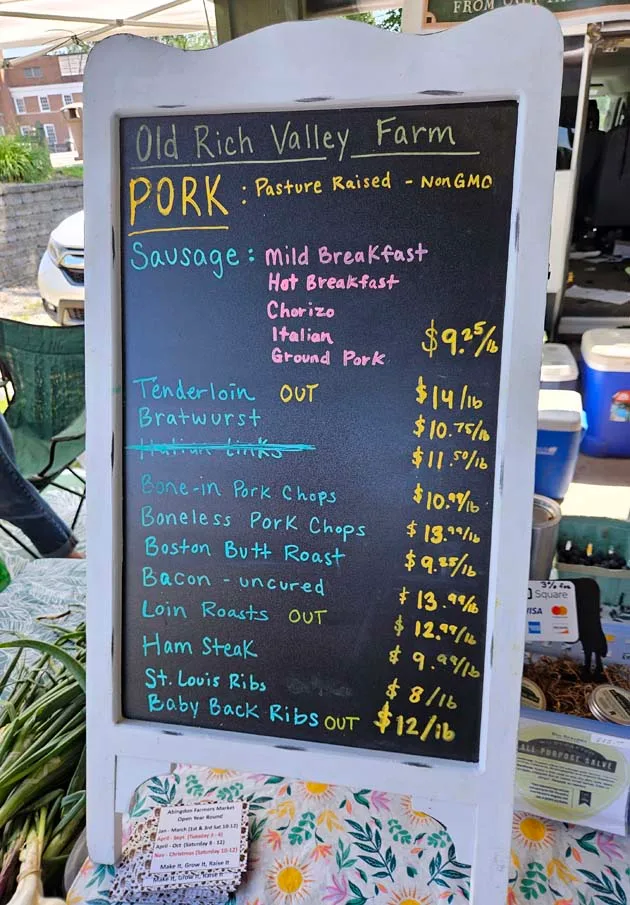 FROM OUR
Old Rich Valley Farm
PORK : Pasture Raised - Non GMO
Sausage : Mild Breakfast
Hot Breakfast
Chorizo
Italian
Ground Pork $9.25/lb
Tenderloin OUT $14/lb
Bratwurst $10.75/lb
Italian Links $11.50/lb
Bone-in Pork Chops $10.99/lb
Boneless Pork Chops $13.99/lb
Boston Butt Roast $9.25/lb
Bacon - uncured $13.99/lb
Loin Roasts OUT $12.99/lb
Ham Steak $9.99/lb
St. Louis Ribs $8/lb
Baby Back Ribs OUT $12/lb
Square
VISA
ALL PURPOSE SALVE
Abingdon Farmers Market
Open Year Round
Jan - March (1st & 3rd Sat 10-12)
April - Sept. (Tuesday 3 - 6)
April - Oct (Saturday 8 - 12)
Nov - Christmas (Saturday 10-12)
Make It, Grow It, Raise It
Make It, Grow It, Raise It